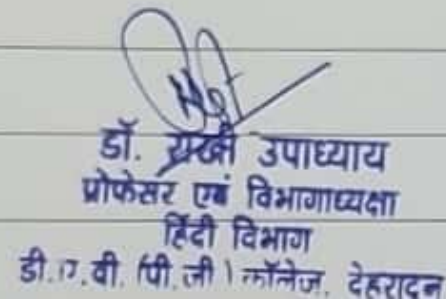 डॉ. राखी उपाध्याय
प्रोफेसर एवं विभागाध्यक्षा
हिंदी विभाग
डी.ए.वी. (पी.जी.) कॉलेज, देहरादून